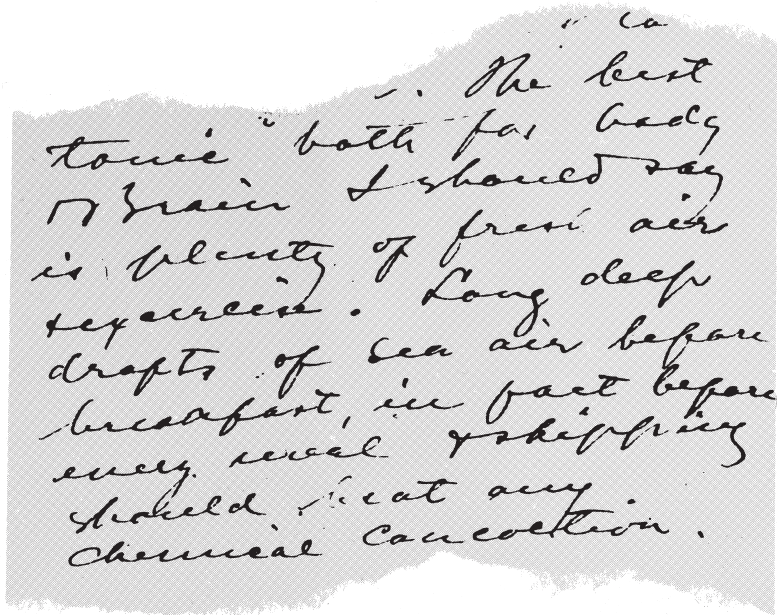 The best
tonic both for body
or Brain I should say
is plenty of fresh air
& exercise. Long deep
drafts of sea air before
breakfast, in fact before
every meal & skipping
should beat any
chemical concoction.